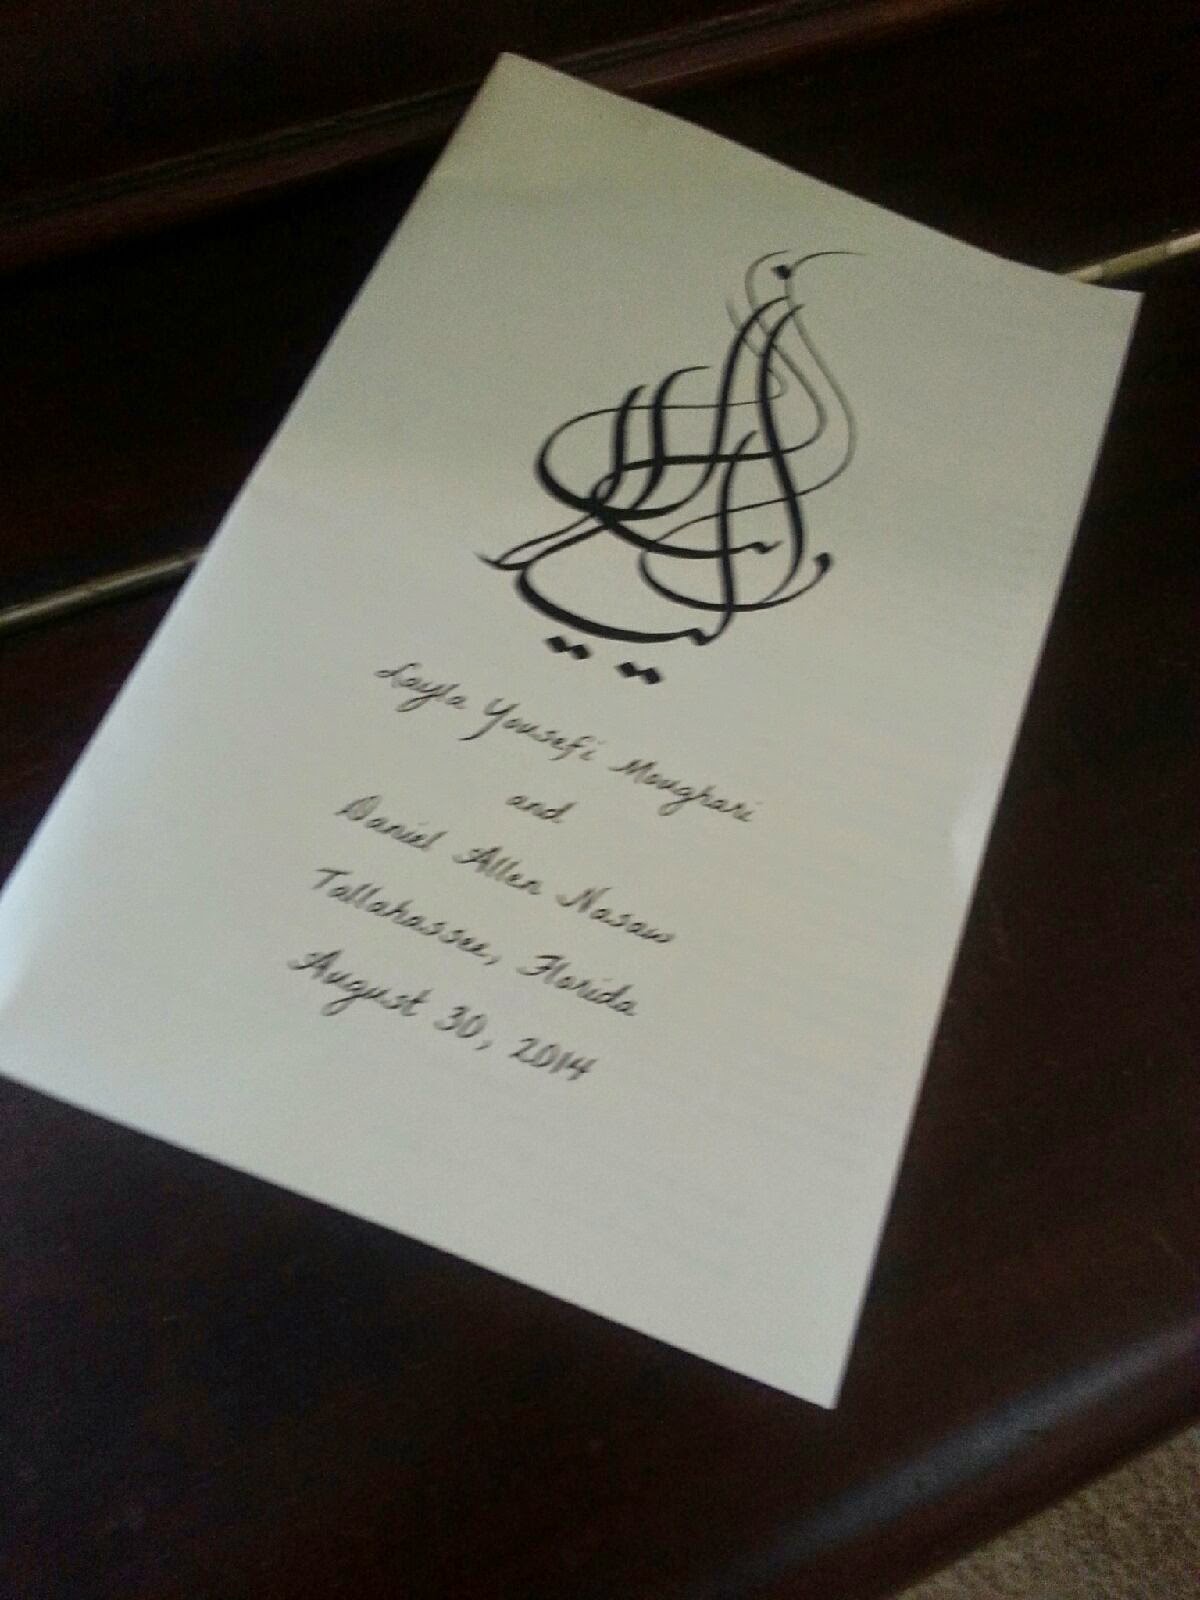 Layla Yousefi Moughari
and
Daniel Allen Nasaw
Tallahassee, Florida
August 30, 2014